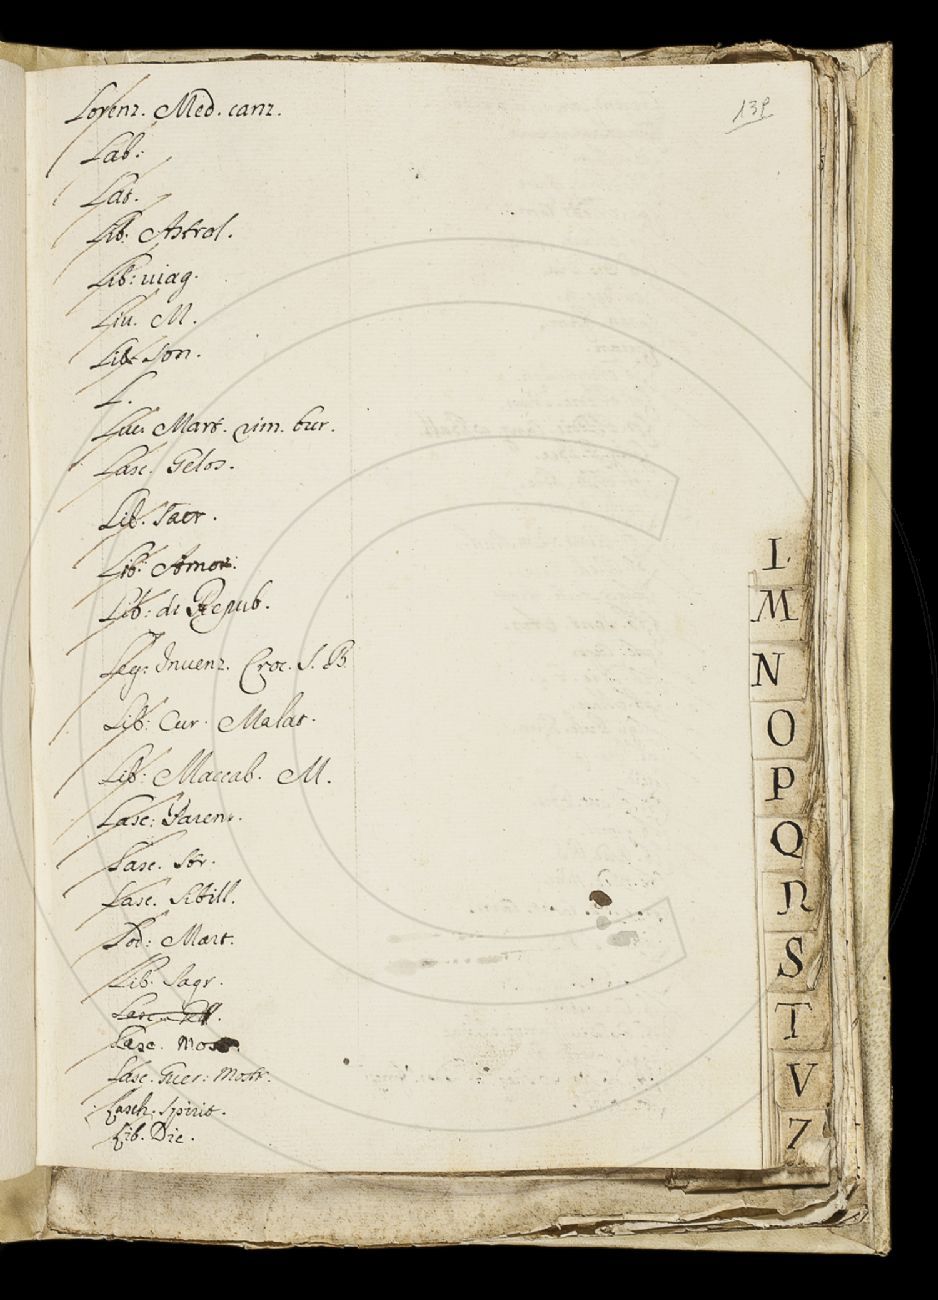 139
Lorenz. Med. canz.
Lab:
Lat.
Lib. Astrol.
Lib: uiag.
Liu. M.
Lib. Son.
L.
Luc. Mart. rim. bur.
Lasc. Gelos.
Lib. Sacr.
Lib. Amor:
Lib: di Repub.
Leg: Inuenz. Croc. S. B
Lib: Cur. Malat.
Lib: Maccab. M.
Lasc: Paren.
Lasc. Str.
Lasc. Sibill.
Lod: Mart.
Lib. Sagr.
Lasc. Mostr.
Lasc. Guer: Mostr.
Lasch. Spirit.
Lib. Die.
L
M
N
O
P
Q
R
S
T
V
Z